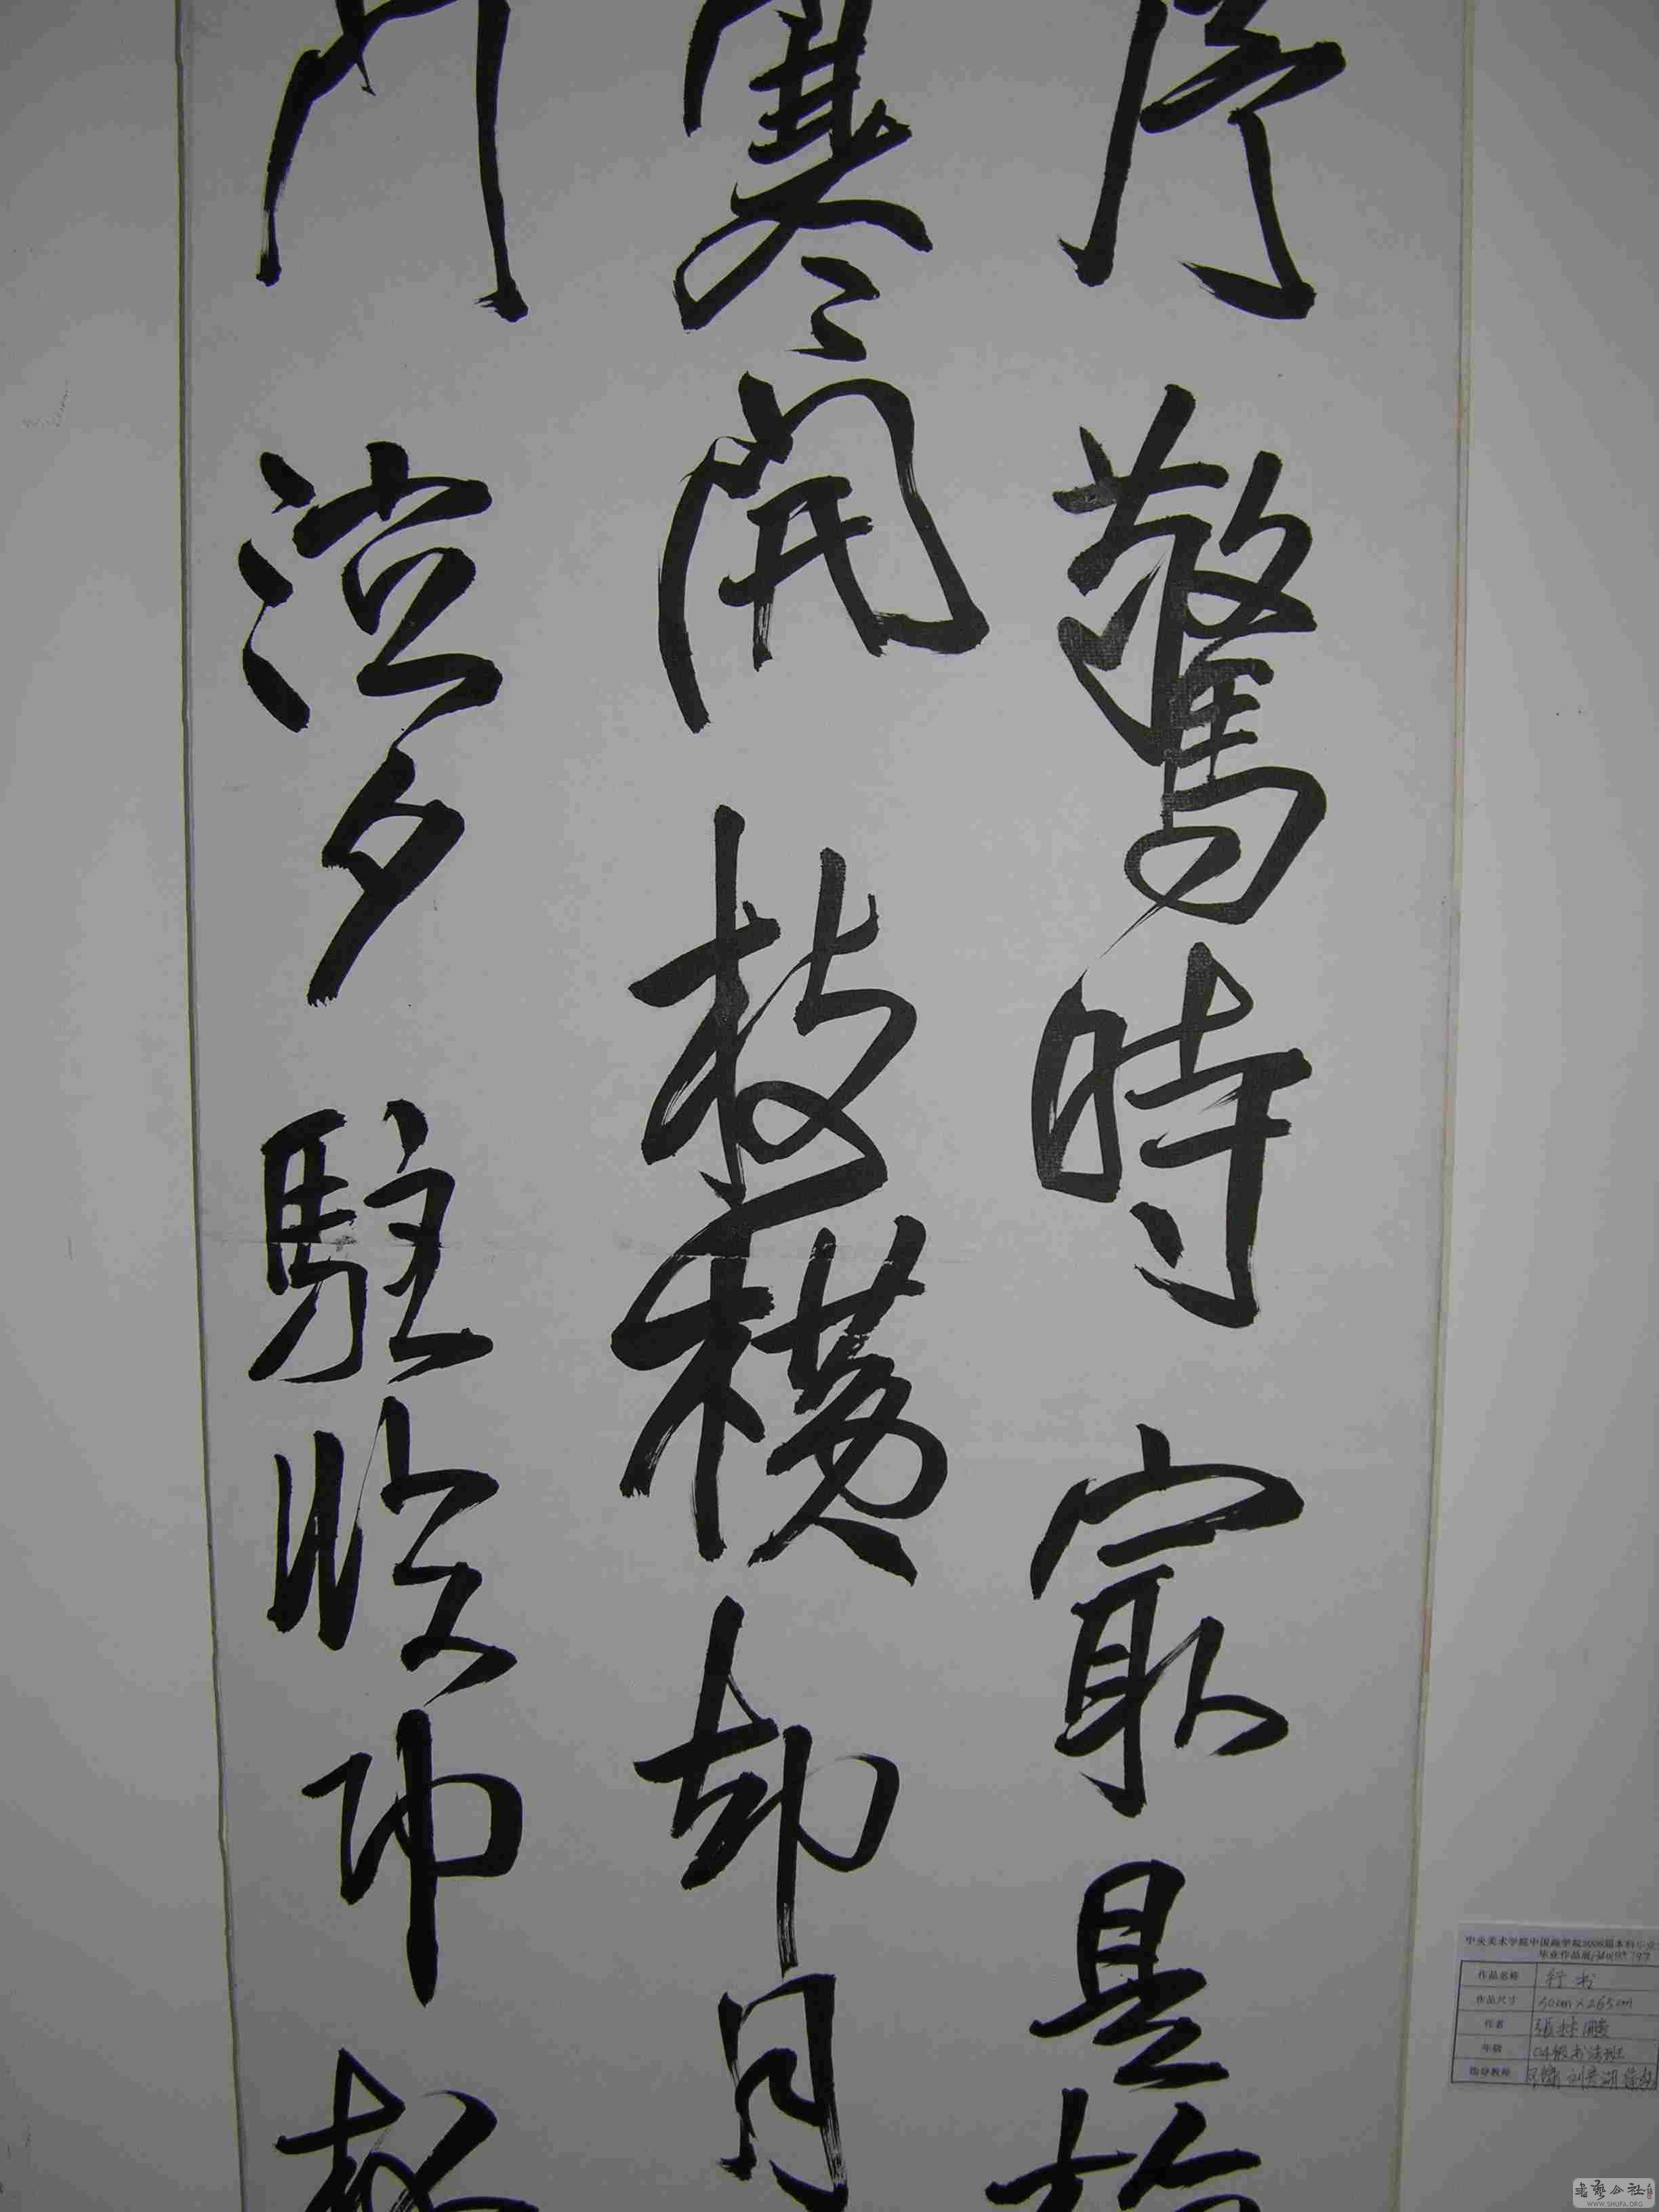 序驚時冣是梅
寒開枝橫却月
門泣夕駐臨卭
中央美术学院中国画学院2008届本科毕业
毕业作品展
作品名称 行书
作品尺寸 50cm×265cm
作者 張林
年级 04级书法班
指导教师
書藝公社
WWW.SHUFA.ORG